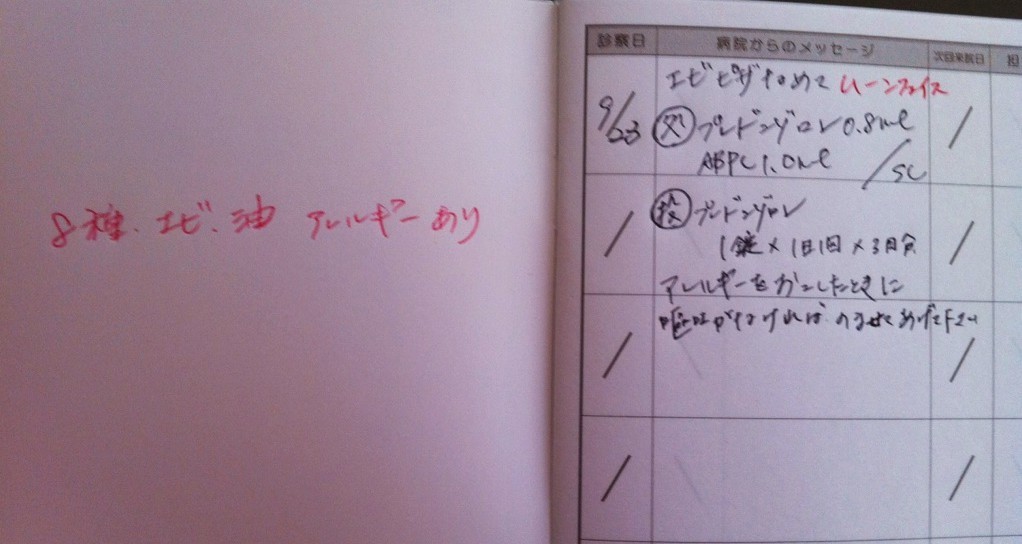 8種.エビ.油 アレルギーあり
診察日 病院からのメッセージ 次回来院日 担
エビピザなめて ムーンフェイス
9/23 処 プレドニゾロン 0.8ml
ABPC 1.0ml /SC
投 プレドニゾロン
1錠×1日1回×3日分
アレルギーをおこしたときに
嘔吐がなければ のませてあげて下さい